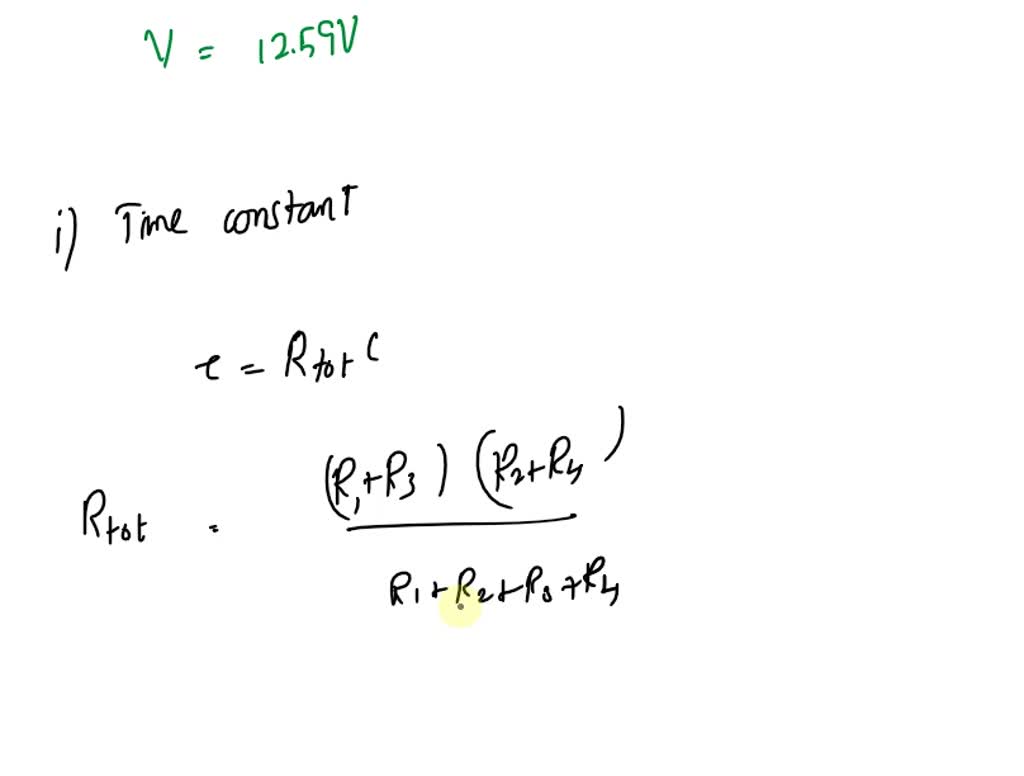 V = 12.59V
i) Time constant
τ = Rtot C
Rtot = (R1+R3) (R2+R4)
R1+R2+R3+R4